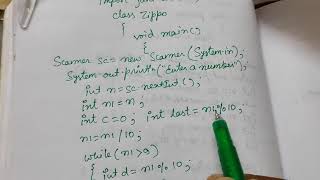 import java
class Zippo
{
void main()
{
Scanner sc = new Scanner(System.in);
System.out.println("Enter a number");
int n = sc.nextInt();
int n1 = n;
int c = 0; int last = n1%10;
n1 = n1/10;
while (n1>9)
{ int d = n1%10;